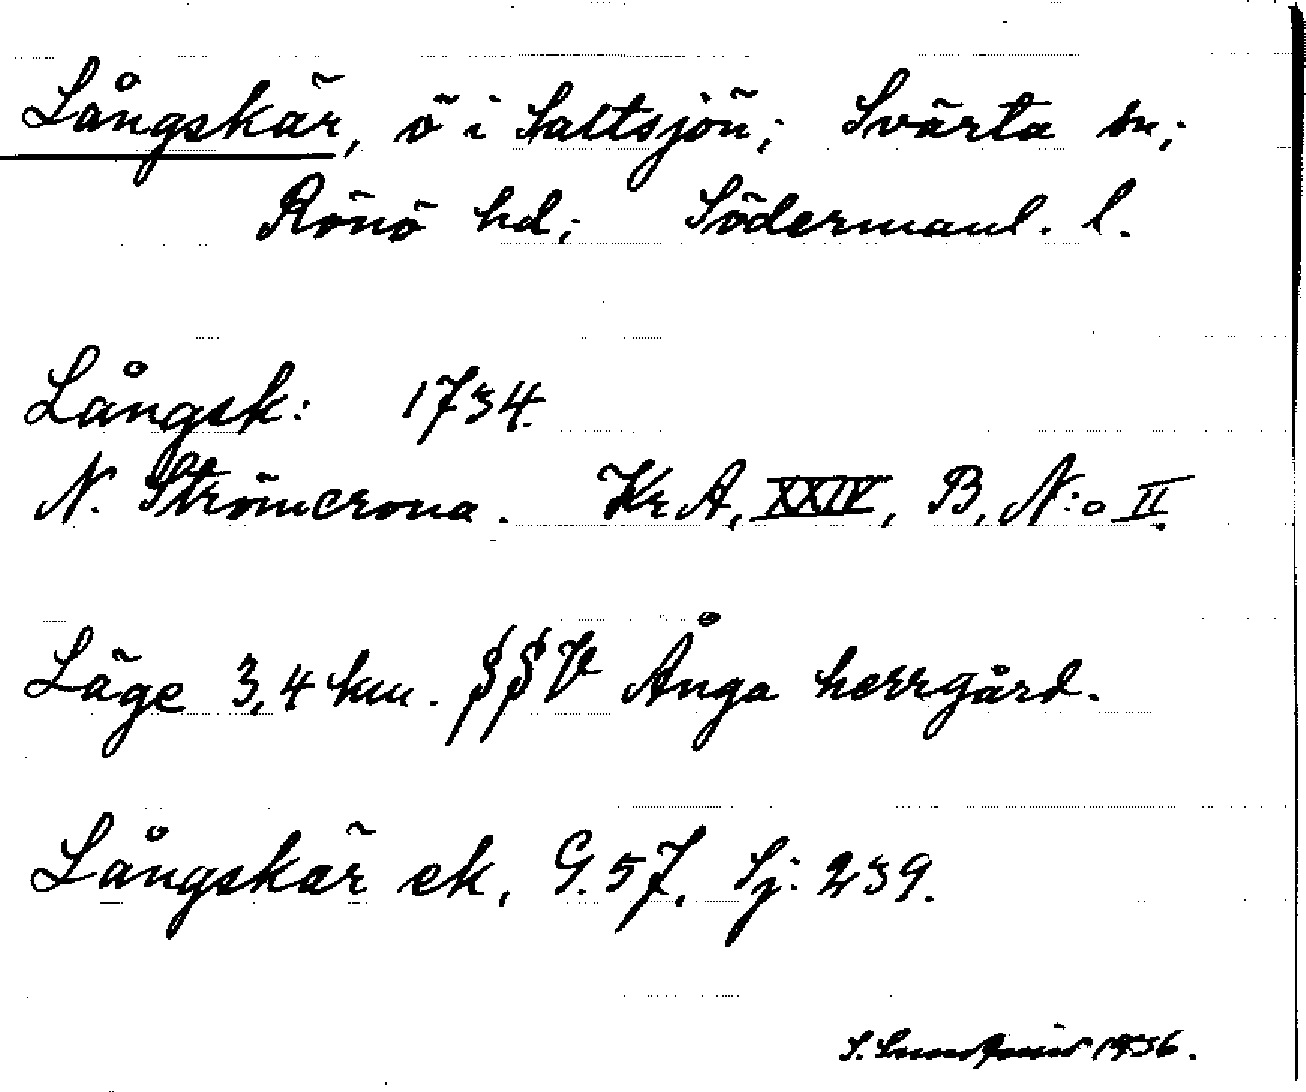 Långskär, ö i Saltsjön; Svärta sn;
Rönö hd; Södermanl. l.
Långsk: 1734.
N. Strömcrona. Kr A, XXIV, B, N:o II.
Läge 3,4 km. SSV Ånga herrgård.
Långskär ek, G. 57, Sj: 239.
1936.